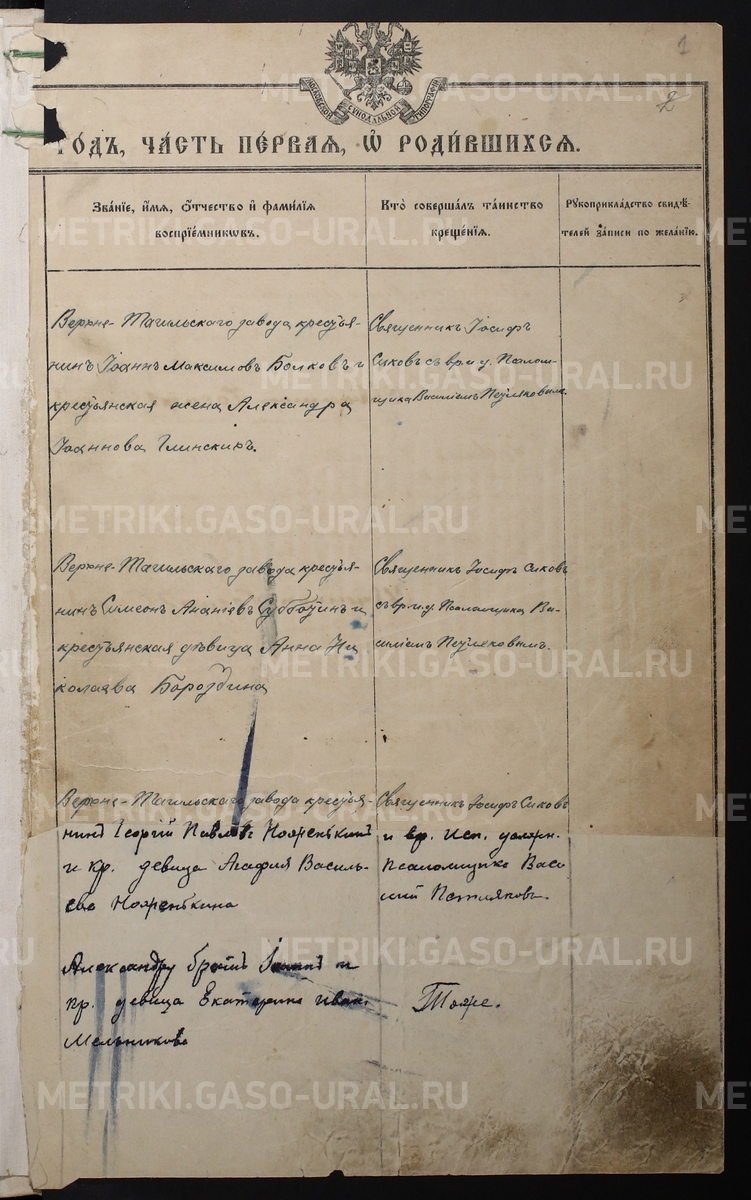 1
2
МОСКОВСКОЙ СѴНОДАЛЬНОЙ ТИПОГРАФІИ
ГО́ДЪ, ЧА́СТЬ ПЕ́РВАЯ, Ѽ РОДИ́ВШИХСЯ.
Зва́нїе, и́мя, о́тчество и҆ фами́лїя
воспрїе́мникѡвъ.
Кто̀ соверша́лъ та́инство
креще́нїя.
Рꙋкоприкла́дство свидѣ́-
телей за́писи по жела́нїю.
Верхне-Тагильскаго завода крестья-
нинъ Іоаннъ Максимовъ Волковъ и
крестьянская жена Александра
Іоаннова Глинскихъ.
Священникъ Іосифъ
Сиковъ съ вр и. д. Псалом-
щика Василіемъ Петляковымъ.
Верхне-Тагильскаго завода крестья-
нинъ Симеонъ Ананіевъ Субботинъ и
крестьянская дѣвица Анна Ни
колаева Бороздина
Священникъ Іосифъ Сиковъ
съ вр и. д. Псаломщика Ва-
силіемъ Петляковымъ.
Верхне-Тагильскаго завода крестья-
нинъ Георгій Павловъ Ноженькинъ
и кр. девица Агафия Василь-
ева Ноженькина
Священникъ Іосифъ Сиковъ
и вр. исп. должн.
псаломщика Васи
лий Петляковъ.
Александру братъ Іоаннъ и
кр. девица Екатерина Иван.
Мельникова
Тоже.
METRIKI.GASO-URAL.RU